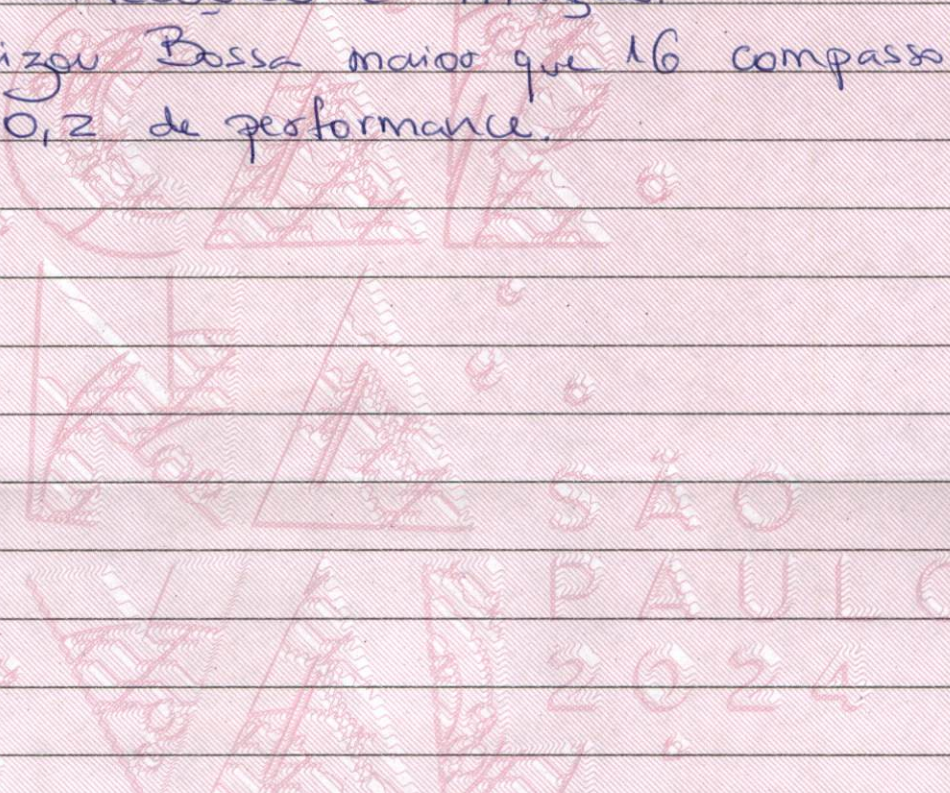 izou Bossa maior que 16 compasso
0,2 de performance.
SÃO
PAULO
2024